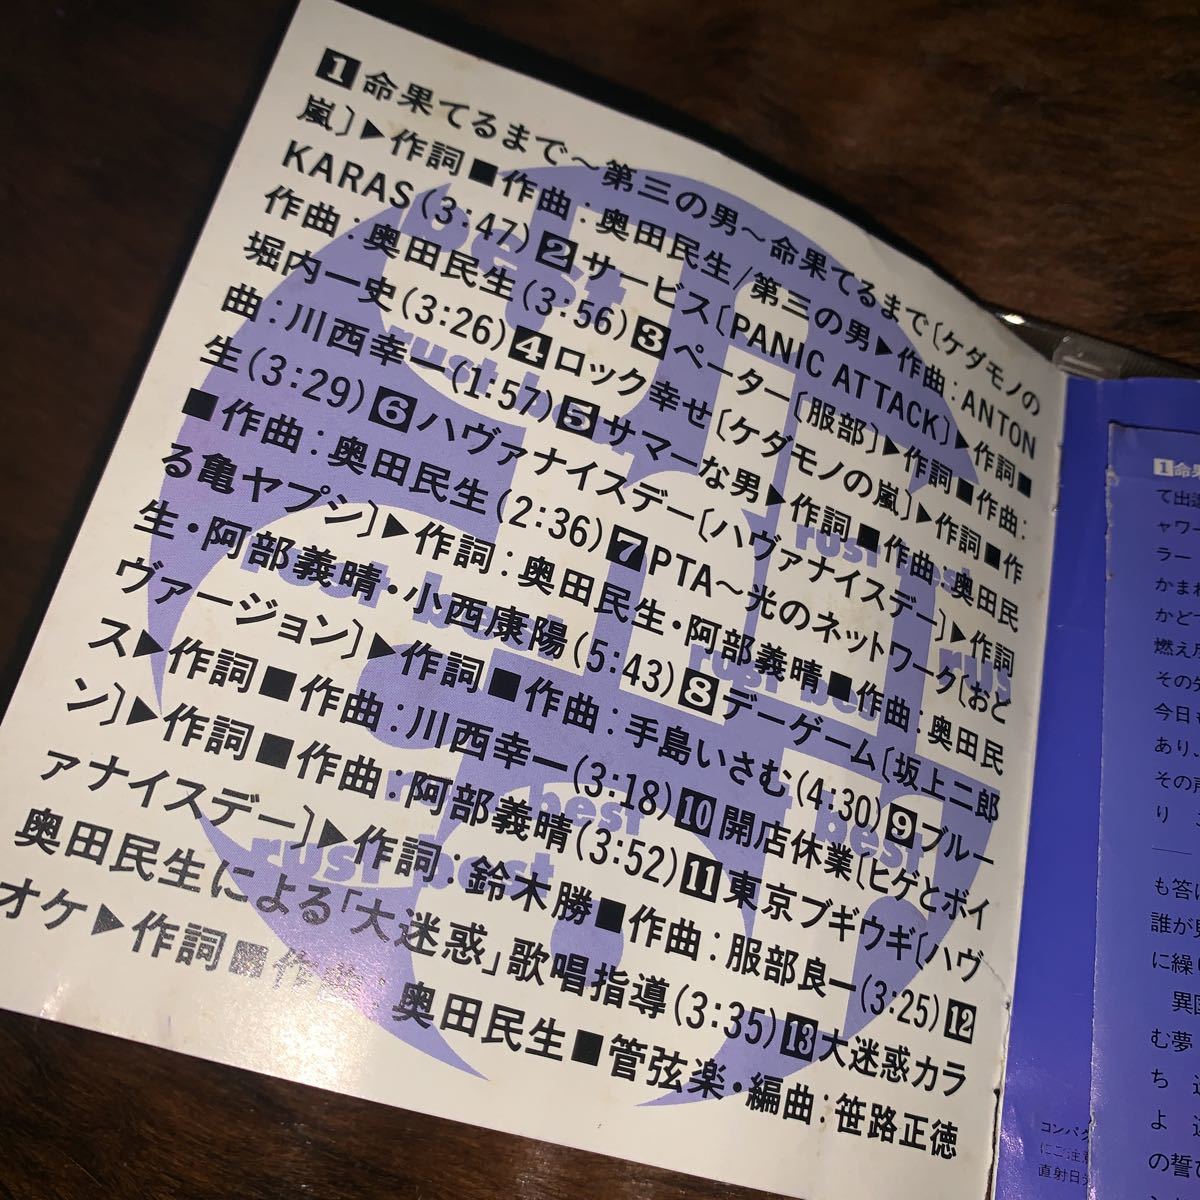 1命果てるまで～第三の男～命果てるまで〔ケダモノの
嵐〕▶作詞■作曲:奥田民生/第三の男▶作曲:ANTON
KARAS(3:47)2サービス〔PANIC ATTACK〕▶作詞■
作曲:奥田民生(3:56)3ペーター〔服部〕▶作詞■作曲:
堀内一史(3:26)4ロック幸せ〔ケダモノの嵐〕▶作詞■作
曲:川西幸一(1:57)5サマーな男▶作詞■作曲:奥田民
生(3:29)6ハヴァナイスデー〔ハヴァナイスデー〕▶作詞
■作曲:奥田民生(2:36)7PTA～光のネットワーク〔おど
る亀ヤプシ〕▶作詞:奥田民生・阿部義晴■作曲:奥田民
生・阿部義晴・小西康陽(5:43)8デーゲーム〔坂上二郎
ヴァージョン〕▶作詞■作曲:手島いさむ(4:30)9ブルー
ス▶作詞■作曲:川西幸一(3:18)10開店休業〔ヒゲとボイ
ン〕▶作詞■作曲:阿部義晴(3:52)11東京ブギウギ〔ハヴ
ァナイスデー〕▶作詞:鈴木勝■作曲:服部良一(3:25)12
奥田民生による「大迷惑」歌唱指導(3:35)13大迷惑カラ
オケ▶作詞■作曲:奥田民生■管弦楽・編曲:笹路正徳
best
rust
rust best
rust best
rust best
rus
best
rust best
best
1命果
て出
ャワ
ラー
かまわ
かど
燃え尽
その
今日も
あり
その声
り
も答に
誰が見
に繰り
異国
む夢
ち
よ
の誓び
コンパク
にご注意
直射日光